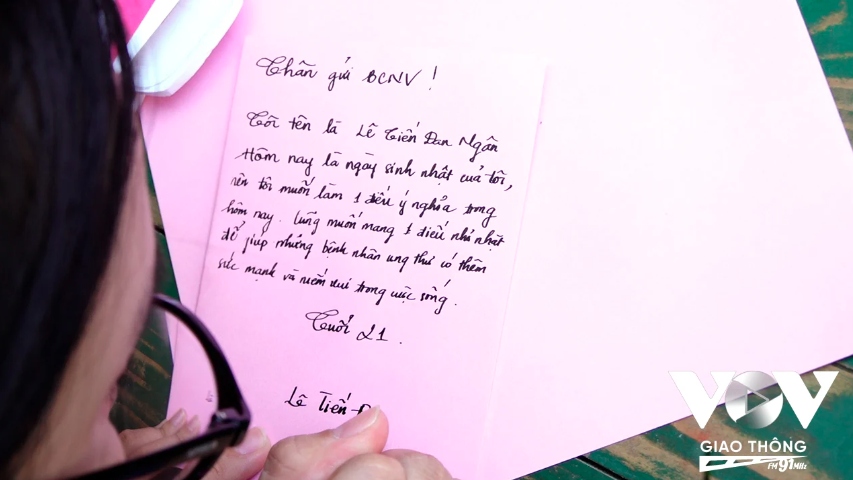 Thân gửi BCNV!
Tôi tên là Lê Tiến Đan Ngân
Hôm nay là ngày sinh nhật của tôi,
nên tôi muốn làm 1 điều ý nghĩa trong
hôm nay. Cũng muốn mang 1 điều nhỏ nhặt
để giúp những bệnh nhân ung thư có thêm
sức mạnh và niềm vui trong cuộc sống.
Tuổi 21.
Lê Tiến
VOV
GIAO THÔNG
FM 91 MHz